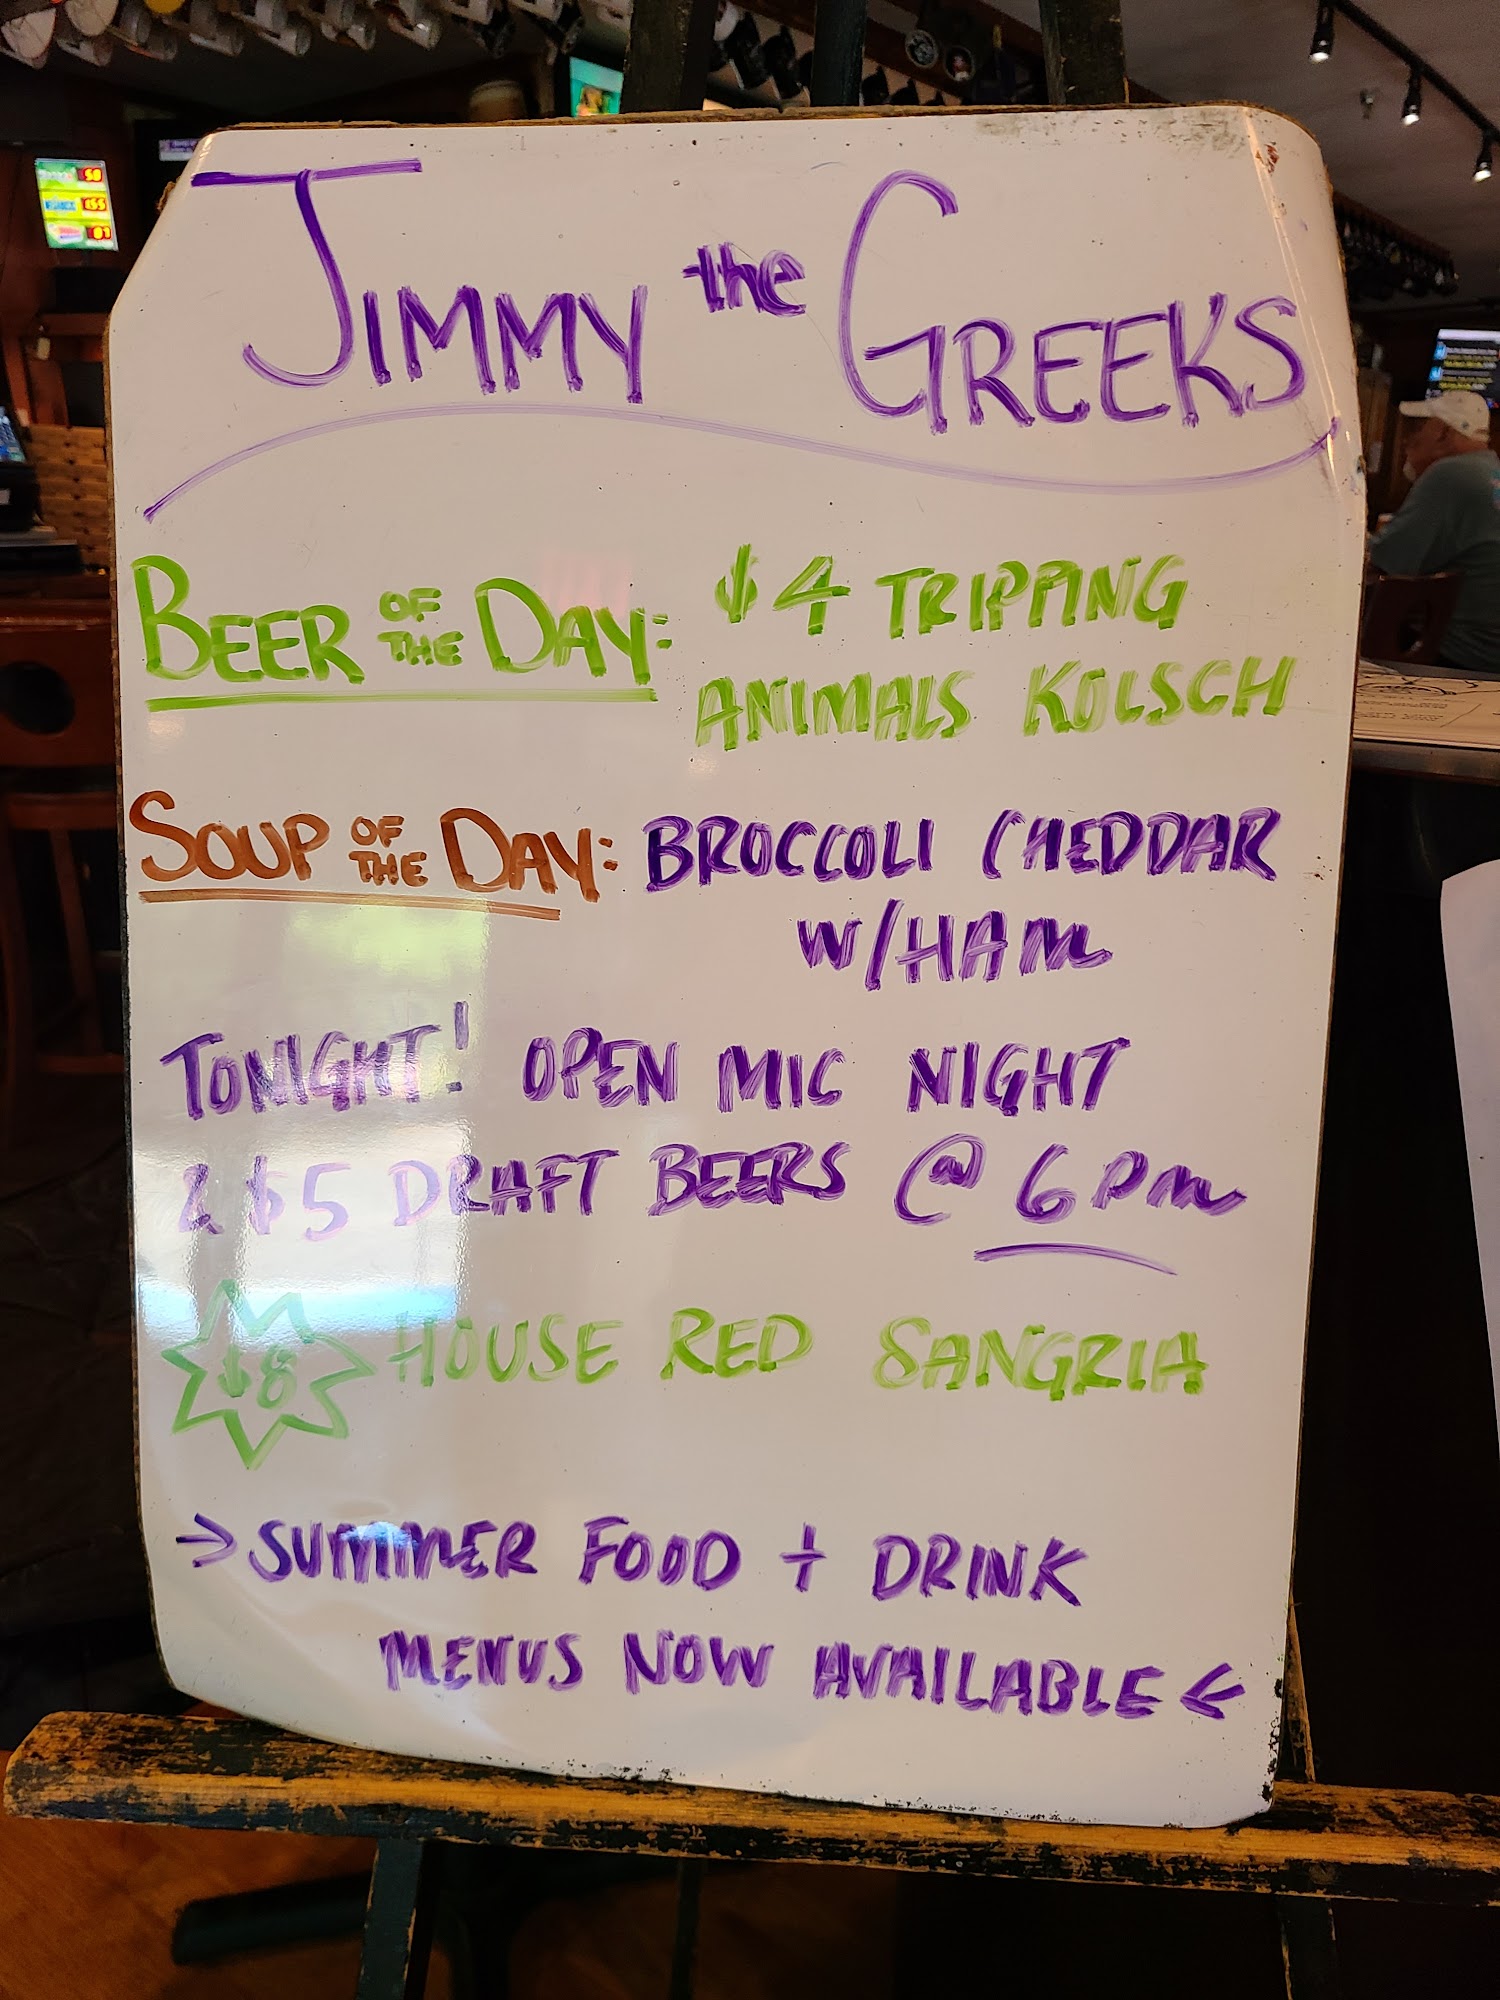 JIMMY the GREEKS
BEER OF THE DAY: $4 TRIPPING
ANIMALS KOLSCH
SOUP OF THE DAY: BROCCOLI CHEDDAR
W/HAM
TONIGHT! OPEN MIC NIGHT
& $5 DRAFT BEERS @ 6PM
$8 HOUSE RED SANGRIA
→ SUMMER FOOD + DRINK
MENUS NOW AVAILABLE ←